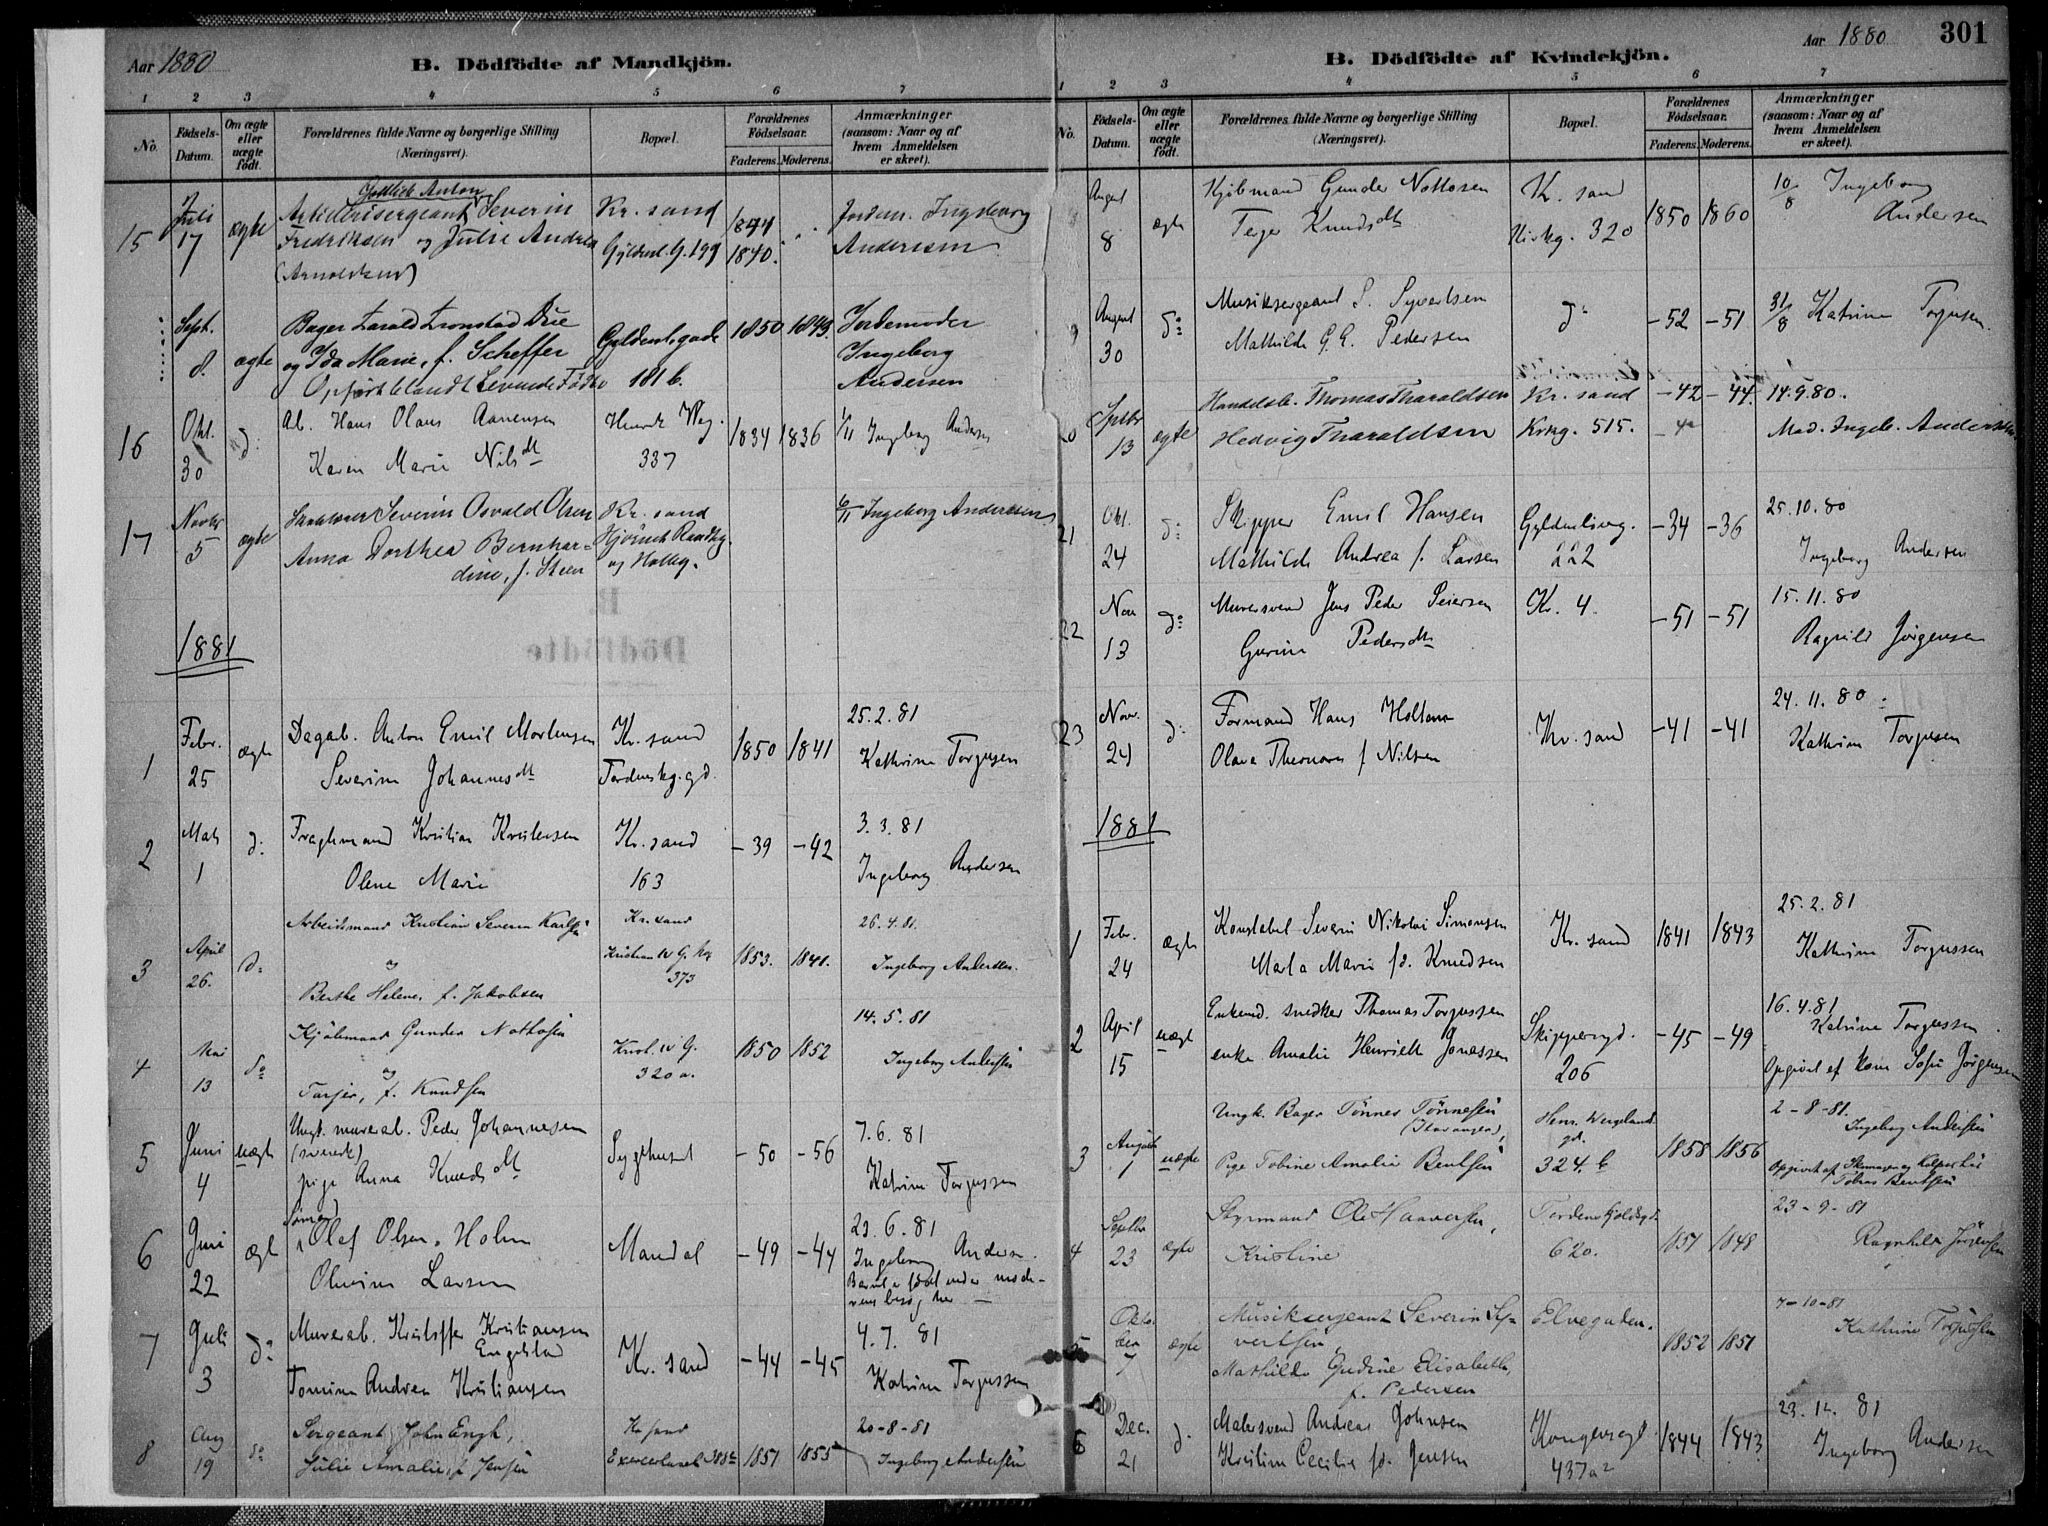 Aar 1880
B. Dödfödte af Mandkjön.
1 2 3 4 5 6 7
No.
Födsels-Datum.
Om ægte eller uægte födt.
Forældrenes fulde Navne og borgerlige Stilling (Næringsvei).
Bopæl.
Forældrenes Födselsaar.
Faderens. Moderens.
Anmærkninger (saasom: Naar og af hvem Anmeldelsen er skeet).
Gottlieb Anton
15 Juli 17 ægte Severin Kr. sand 1844 Jordem. Ingeborg
Fredriksen og Julie Andrea Gyldenl. G. 199 1840. Andersen
(Arnoldsen)
Sept. 8. ægte Bager Harald Tronstad Due Gyldenl.gade 1850 1843. Jordemoder
og Ida Marie, f. Scheffer 181 b. Ingeborg
Opført blandt Levende Fødte Andersen
16 Okt. 30 d: Ab. Hans Olaus Aanensen 1834 1836 1/11 Ingeborg Andersen
Karen Marie Nilsdt 337
17 Novbr 5 ægte Severin Osvald Olsen Kr. sand 6/11 Ingeborg Andersen
Anna Dorthea Bernhar-
dine, f. Steen og Holleg.
1881
1 Febr. 25 ægte Dagab. Anton Emil Mortensen Kr. sand 1850 1841 25.2.81
Severine Johannesdt Tordenskg.gd. Kathrine Torgusen
2 Mats 1 d: Fragtmand Kristian Kristensen Kr. sand -39 -42 3.3.81
Olene Marie 163 Ingeborg Andersen
3 April 26. d: Arbeidsmand Kristian Severin Karlsen Kr. sand 1853. 1841. 26.4.81.
og Kristian IV G. No 373 Ingeborg Andersen.
Berthe Helene, f. Jakobsen
4 Mai 13 do Kjøbmand Gunder Nottosen Krist. IV G. 320 a. 1850 1852 14.5.81
og Ingeborg Andersen
Tarjer, f. Knudsen
5 Juni 4 uægt Ungk. murerab. Peder Johannesen Sygehuset -50 -56 7.6.81
(svensk)
pige Anna Knudsdt Katrine Torgussen
6 Juni 22 ægt Sømand Olaf Olsen Holm Mandal -49 -44 23.6.81
Olevine Larsen Ingeborg Andersen
Barnet er født under mode-
rens besøg her
7 Juli 3 do Murerab. Kristoffer Kristiansen Engelstad Kr. sand -44 -45 4.7.81
Tomine Andrea Kristiansen Katrine Torgussen
8 Aug 19 do Sergeant John Engh, Kr sand 1851 1855 20-8-81
Julie Amalie, f. Jensen Ingeborg Andersen
Aar 1880
301
B. Dödfödte af Kvindekjön.
1 2 3 4 5 6 7
No.
Födsels-Datum.
Om ægte eller uægte födt.
Forældrenes fulde Navne og borgerlige Stilling (Næringsvei).
Bopæl.
Forældrenes Födselsaar.
Faderens. Moderens.
Anmærkninger (saasom: Naar og af hvem Anmeldelsen er skeet).
August 8 ægte Kjøbmand Gunder Nottosen Kr. sand 1850 1860 10/8 Ingeborg
Terjer Knudsdt Kirkeg. 320 Andersen
9 August 30 do Musiksergeant S. Syvertsen do -52 -51 31/8 Katrine Torjusen.
Mathilde G. E. Pedersen
Septbr 13 ægte Handelsb. Thomas Tharaldsen Kr. sand -42 -44. 14.9.80.
Hedvig Tharaldsen Krkg. 515. Mad. Ingeb. Andersen
21 Okt. 24 d: Skipper Emil Hansen Gyldenløvg. 222 -34 -36 25.10.80
Mathilde Andrea f. Larsen Ingeborg Andersen
22 Nov 13 do Murersvend Jens Peder Seiersen Kr. 4. -51 -51 15.11.80
Gurine Pedersdt Ragnild Jørgensen
23 Nov. 24 d: Formand Hans Holtan Kr. sand -41 -41 24.11.80
Olava f Nilsen Kathrine Torgusen
1881
1 Febr. 24 ægte Konstabel Severin Nikolai Simonsen Kr. sand 1841 1843 25.2.81
Marta Marie fd. Knudsen Kathrine Torgussen
2 April 15 uægt Enkemd. snedker Thomas Torgussen Skippergd. 206 -45 -49 16.4.81
enke Amalie Henriette Jonassen Katrine Torgussen
Opgivet af kone Sofie Jörgensen
3 August 1 uægte Ungk. Bager Tönnes Tönnesen (Stavanger), Henr. Wergelands gd. 324. b 1858 1856 2-8-81.
Pige Tobine Amalie Bentsen Ingeborg Andersen
Opgivet af Tobias Bentsen
4 Septbr 23 ægte Styrmand Ole Haaversen, Tordenskjoldsgd. 620. 1851 1848 23-9-81
Kristine Ragnhild Jörgensen
5 Oktober 7 ægte Musiksergeant Severin Sy- Elvegaden. 1852 1851 7-10-81
vertsen Kathrine Torjusen
Mathilde Gudine Elisabeth,
f. Pedersen
6 Dec. 21 d. Malersvend Andreas Johnsen Kongensgd. 437a2 1844 1843 23.12.81
Kristine Cecilie fd. Jensen Ingeborg Andersen